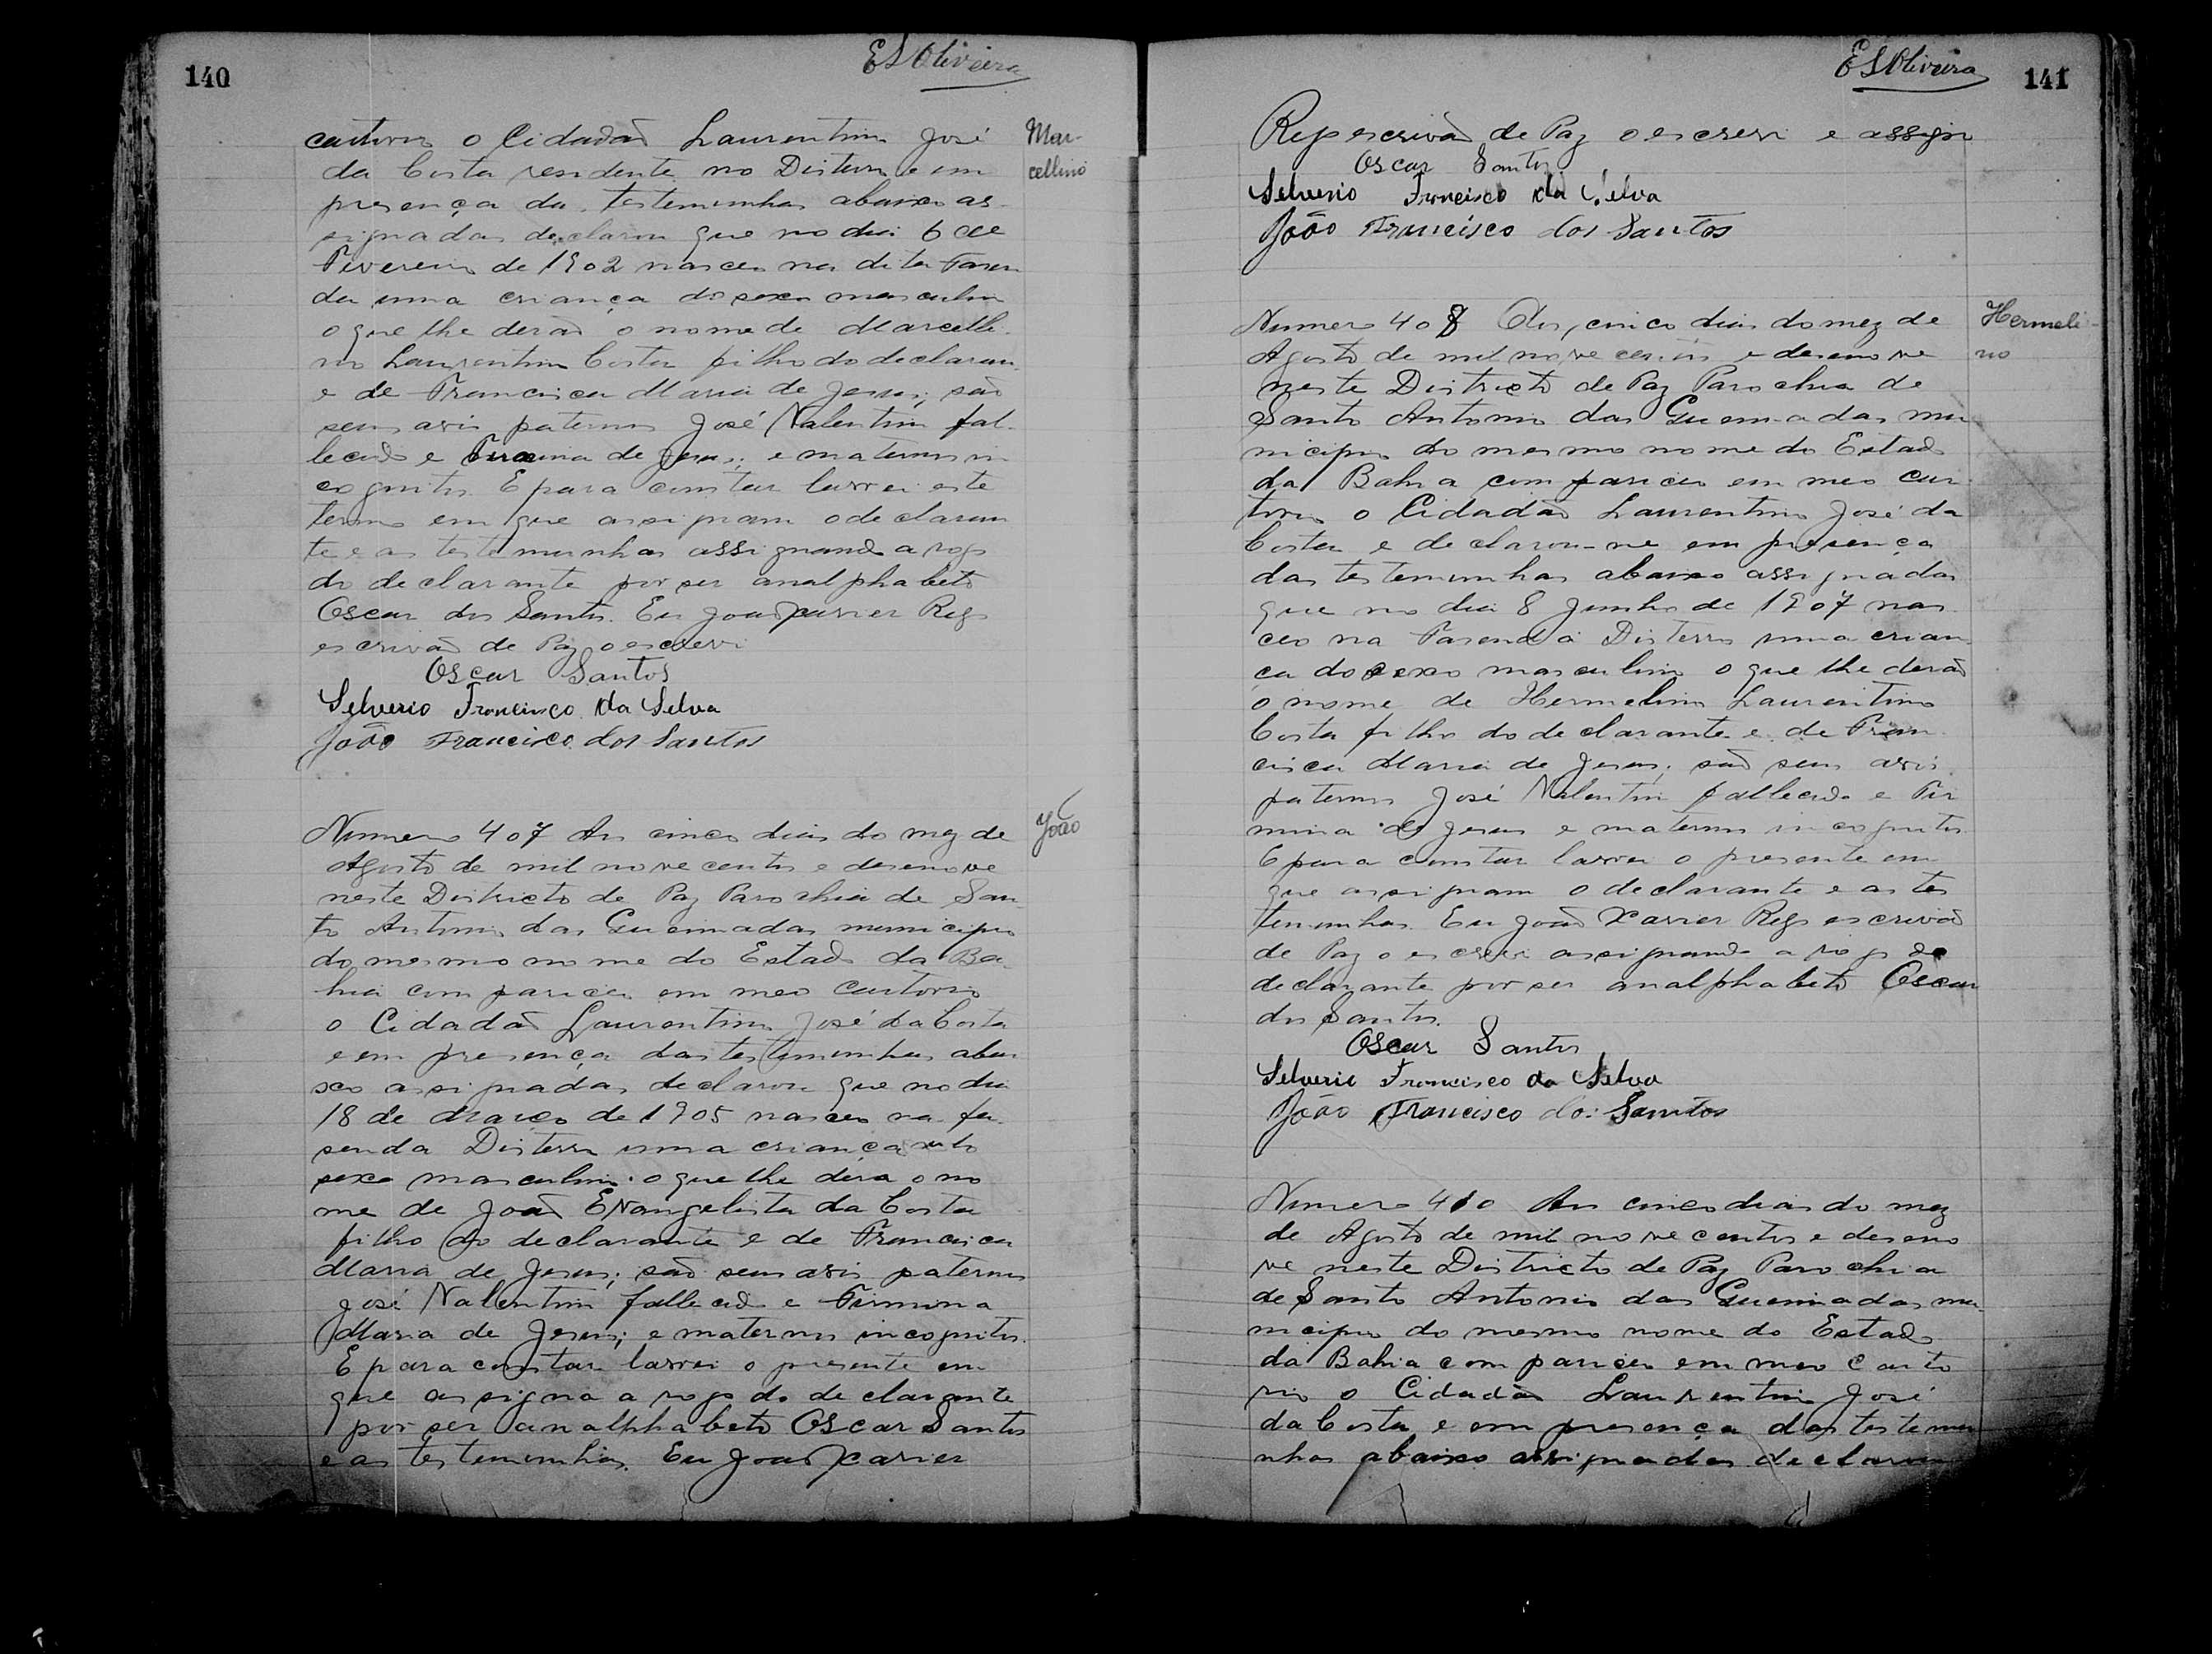 140
ESOliveira
cartorio o Cidadão Laurentino José
Mar-
cellino
da Costa residente no Disterro e em
presença das testemunhas abaixo as-
signadas declarou que no dia 6 de
Fevereiro de 1902 nasceu na dita Fasen
da uma criança do sexo masculin
o que lhe derão o nome de Marcelli-
no Laurentino Costa filho do declaran
e de Francisca Maria de Jesus; são
seus avós paternos José Valentim fal-
lecido e Firmina de Jesus; e maternos in
cognitos. E para constar lavrei este
termo em que assignam o declaran
te e as testemunhas assignando a rogo
do declarante por ser analphabeto
Oscar dos Santos. Eu João Xavier Rego
escrivão de Paz o escrevi
Oscar Santos
Silverio Francisco da Silva
João Francisco dos Santos
João
Numero 407 Aos cinco dias do mez de
Agosto de mil novecentos e desenove
neste Districto de Paz Parochia de San
to Antonio das Queimadas municipio
do mesmo nome do Estado da Ba-
hia compareceu em meo cartorio
o Cidadão Laurentino José da Costa
e em presença das testemunhas abai
xo assignadas declarou que no dia
18 de Março de 1905 nasceu na fa-
senda Disterro uma criança do
sexo masculino o que lhe dera o no
me de João Evangelista da Costa
filho do declarante e de Francisca
Maria de Jesus; são seus avós paternos
José Valentim fallecido e Firmina
Maria de Jesus; e maternos incognitos.
E para constar lavrei o presente em
que assigna a rogo do declarante
por ser analphabeto Oscar Santos
e as testemunhas. Eu João Xavier
ESOliveira
141
Rego escrivão de Paz o escrevi e assigno
Oscar Santos
Silverio Francisco da Silva
João Francisco dos Santos
Numero 408 Aos cinco dias do mez de
Hermeli-
no
Agosto de mil novecentos e desenove
neste Districto de Paz Parochia de
Santo Antonio das Queimadas mu
nicipio do mesmo nome do Estado
da Bahia compareceu em meo car-
torio o Cidadão Laurentino José da
Costa e declarou-me em presença
das testemunhas abaixo assignadas
que no dia 8 Junho de 1907 nas
ceo na Fasenda Disterro uma crian
ça do sexo masculino o que lhe derão
o nome de Hermelino Laurentino
Costa filho do declarante e de Fran-
cisca Maria de Jesus; são seus avós
paternos José Valentim fallecido e Fir
mina de Jesus e maternos incognitos
E para constar lavrei o presente em
que assignam o declarante e as tes
temunhas. Eu João Xavier Rego escrivão
de Paz o escrevi assignando a rogo do
declarante por ser analphabeto Oscar
dos Santos.
Oscar Santos
Silverio Francisco da Silva
João Francisco dos Santos
Numero 410 Aos cinco dias do mez
de Agosto de mil novecentos e deseno
ve neste Districto de Paz Parochia
de Santo Antonio das Queimadas mu-
nicipio do mesmo nome do Estado
da Bahia compareceu em meo carto
rio o Cidadão Laurentino José
da Costa e em presença das testemu
nhas abaixo assignadas declarou